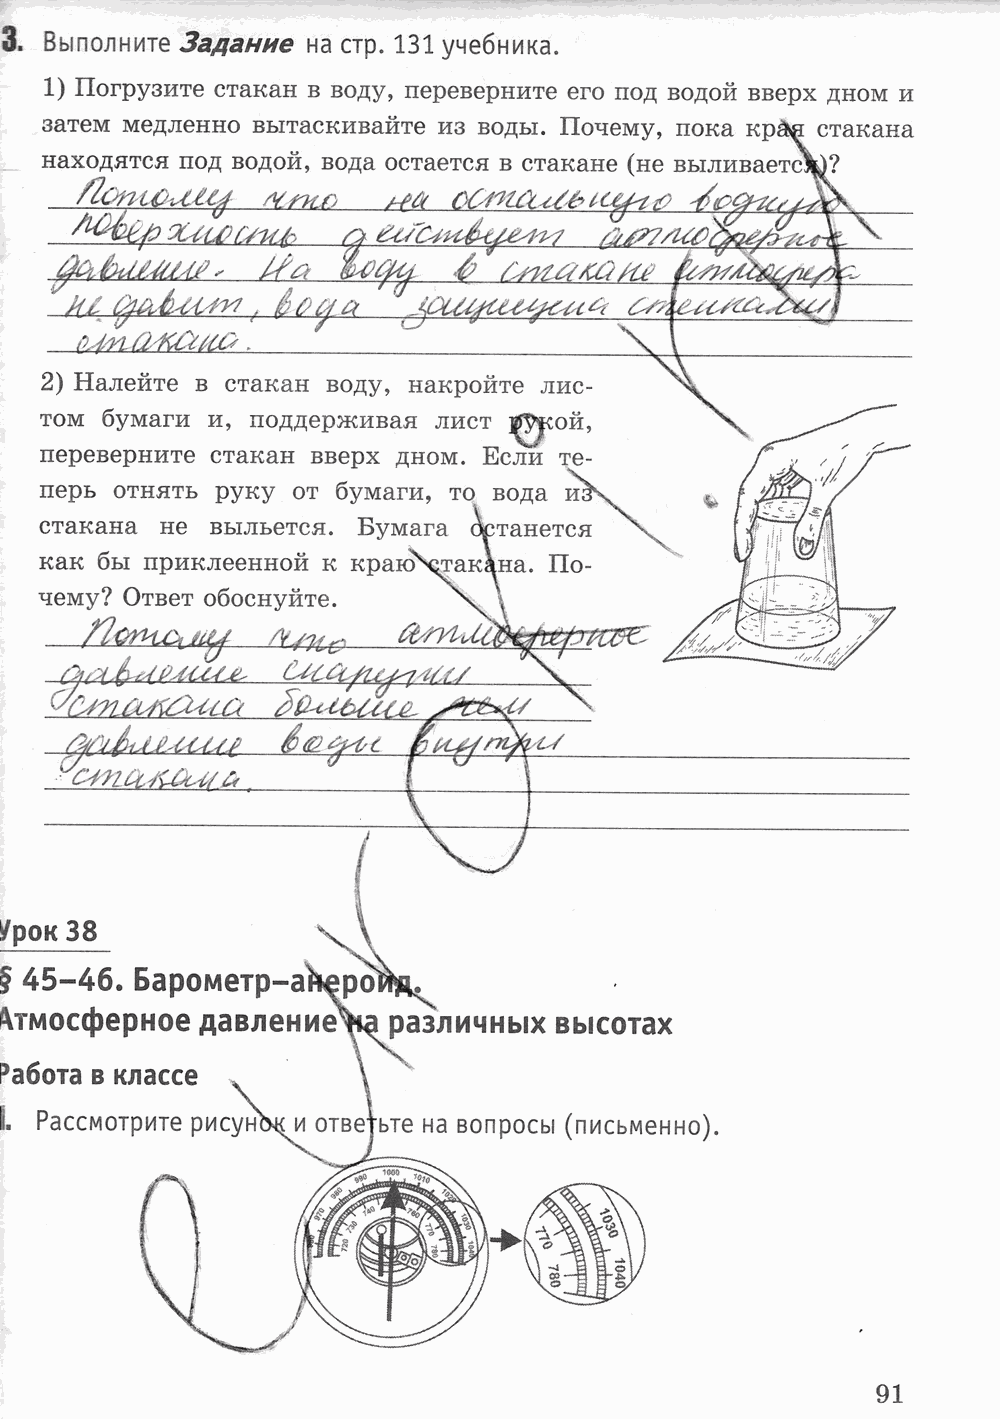 3. Выполните Задание на стр. 131 учебника.
1) Погрузите стакан в воду, переверните его под водой вверх дном и
затем медленно вытаскивайте из воды. Почему, пока края стакана
находятся под водой, вода остается в стакане (не выливается)?
Потому что на остальную водную
поверхность действует атмосферное
давление. На воду в стакане атмосфера
не давит, вода защищена стенками
стакана.
2) Налейте в стакан воду, накройте лис-
том бумаги и, поддерживая лист рукой,
переверните стакан вверх дном. Если те-
перь отнять руку от бумаги, то вода из
стакана не выльется. Бумага останется
как бы приклеенной к краю стакана. По-
чему? Ответ обоснуйте.
Потому что атмосферное
давление снаружи
стакана больше чем
давление воды внутри
стакана.
Урок 38
§ 45–46. Барометр–анероид.
Атмосферное давление на различных высотах
Работа в классе
1. Рассмотрите рисунок и ответьте на вопросы (письменно).
970 980 990 1000 1010 1020 1030 1040
720 730 740 760 770 780
1030
770
1040
780
91